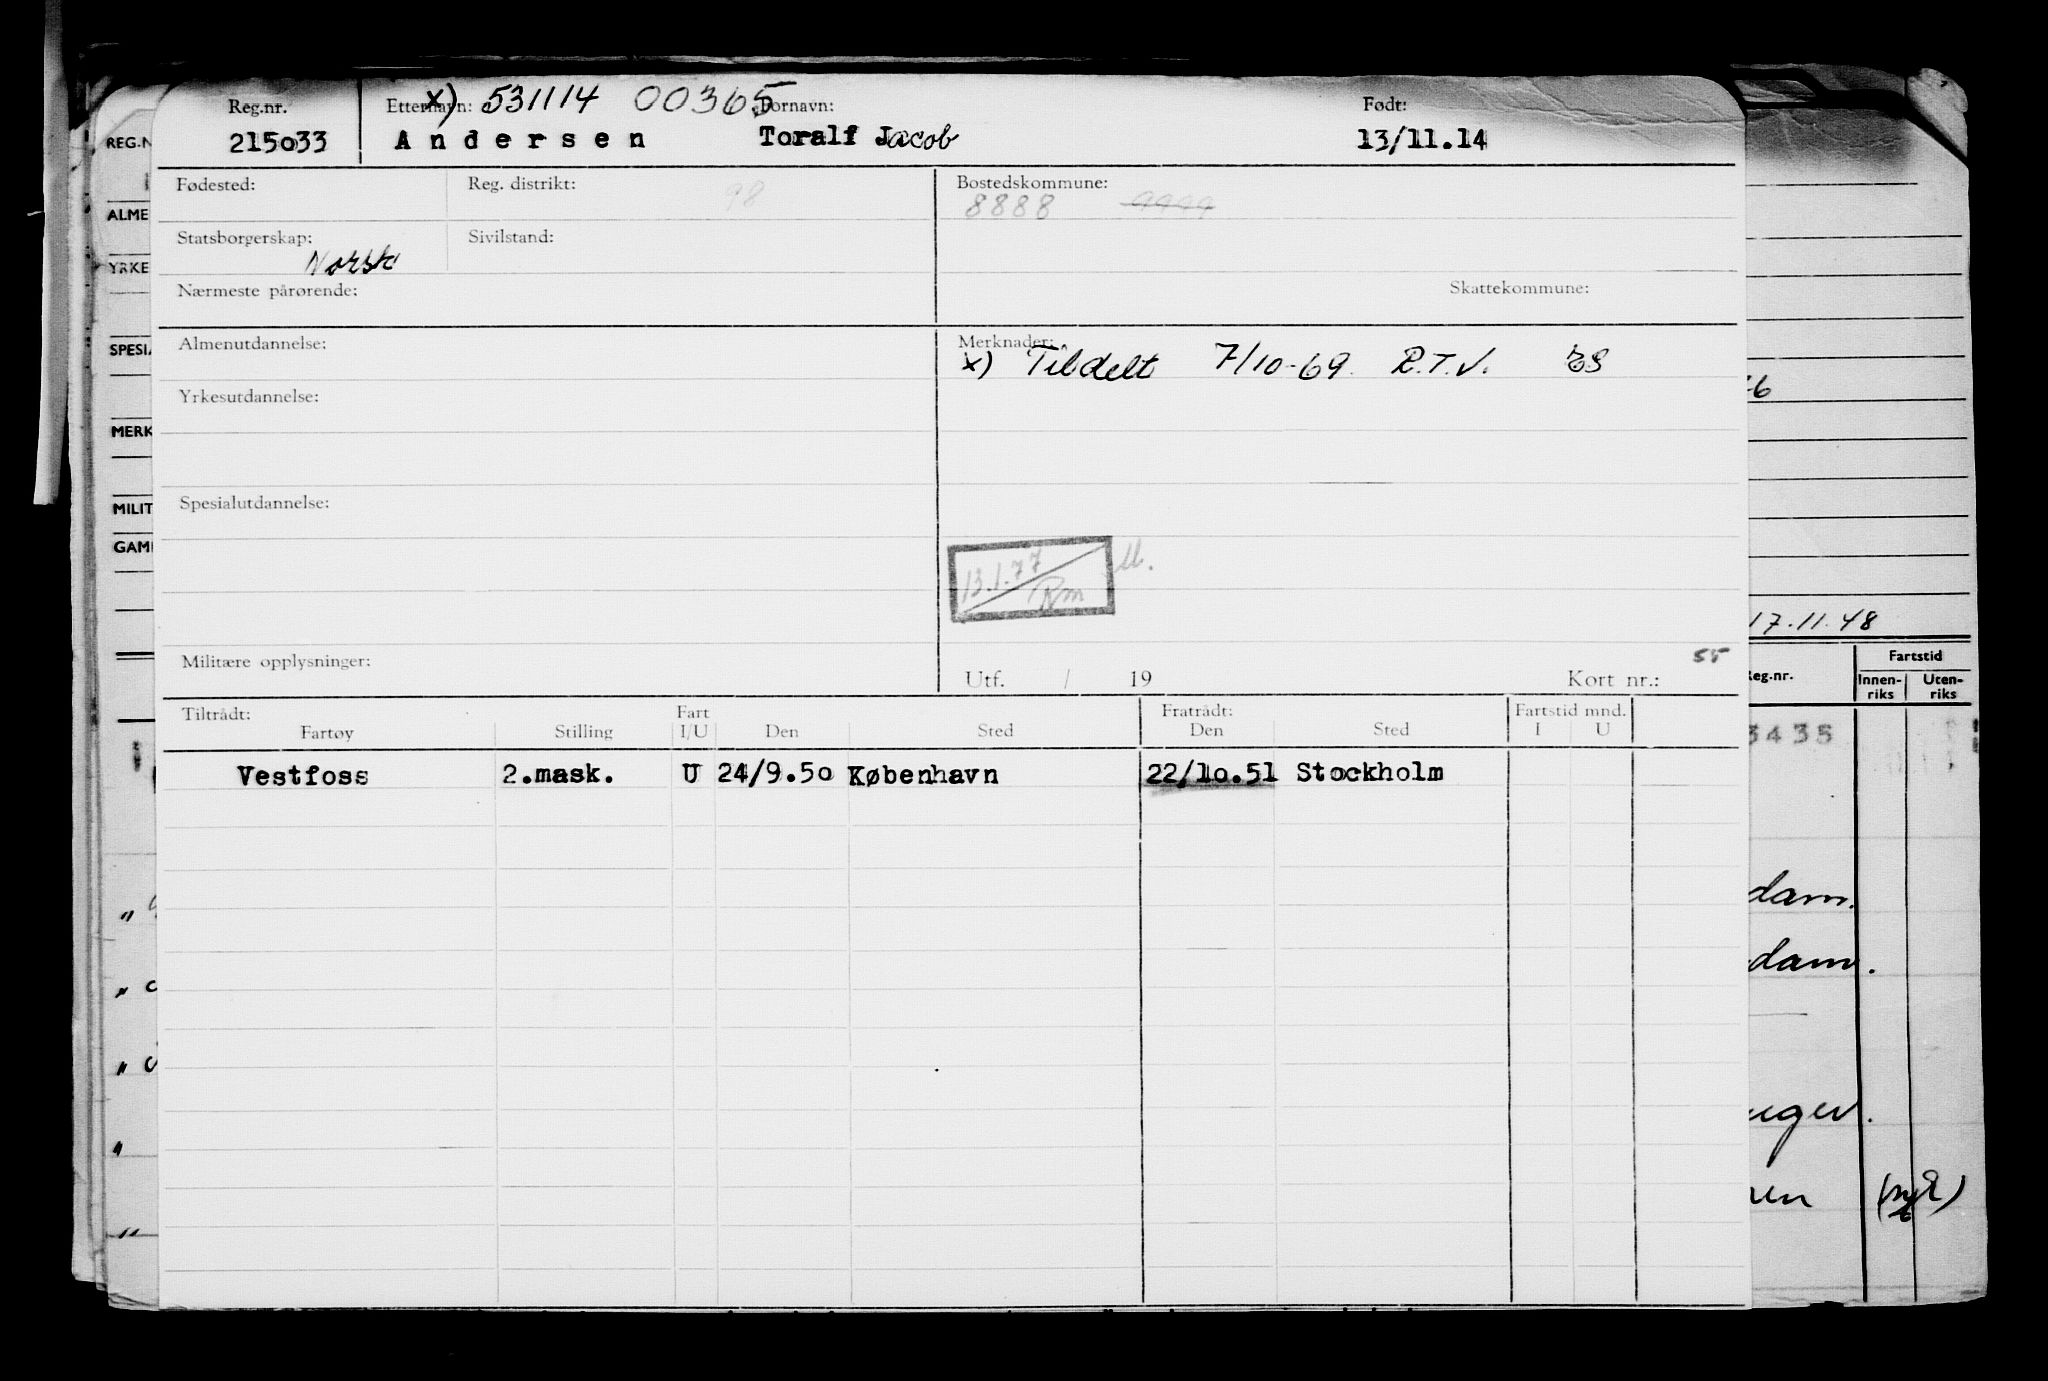 Reg.nr. Etternavn: x) 531114 00365 Fornavn: Født:
215033 Andersen Toralf Jacob 13/11.14
Fødested: Reg. distrikt: 98 Bostedskommune:
8888 9999
Statsborgerskap: Sivilstand:
Norsk
Nærmeste pårørende: Skattekommune:
Almenutdannelse: Merknader:
x) Tildelt 7/10-69 R.T.V.
Yrkesutdannelse:
Spesialutdannelse:
13.1.77 M.
Rm
Militære opplysninger: Utf. / 19 Kort nr.: 55
Tiltrådt: Fart Fratrådt: Fartstid mnd.
Fartøy Stilling I/U Den Sted Den Sted I U
Vestfoss 2.mask. U 24/9.50 København 22/10.51 Stockholm
REG.N
ALME
YRKE
SPESIA
MERK
MILIT
GAM
17.11.48
Reg.nr. Fartstid
Innen-riks Uten-riks
3435
dam.
dam.